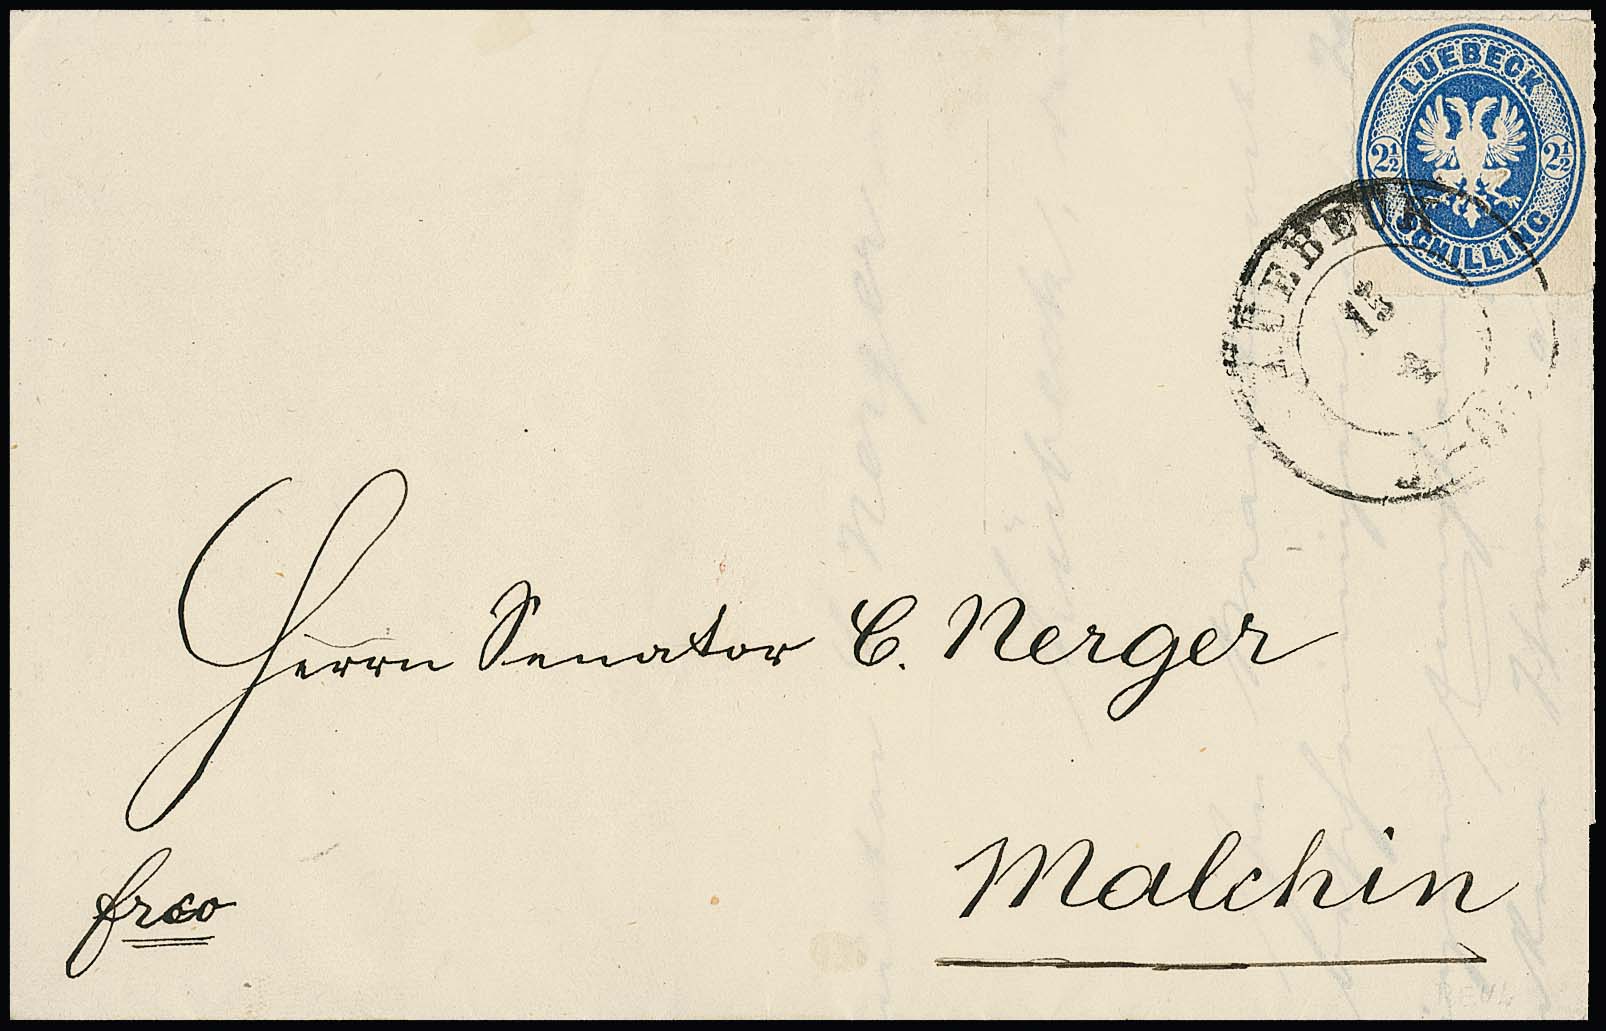 LUEBECK
2½ 2½
SCHILLING
LUEBECK
15
Herrn Senator C. Nerger
Malchin
frco